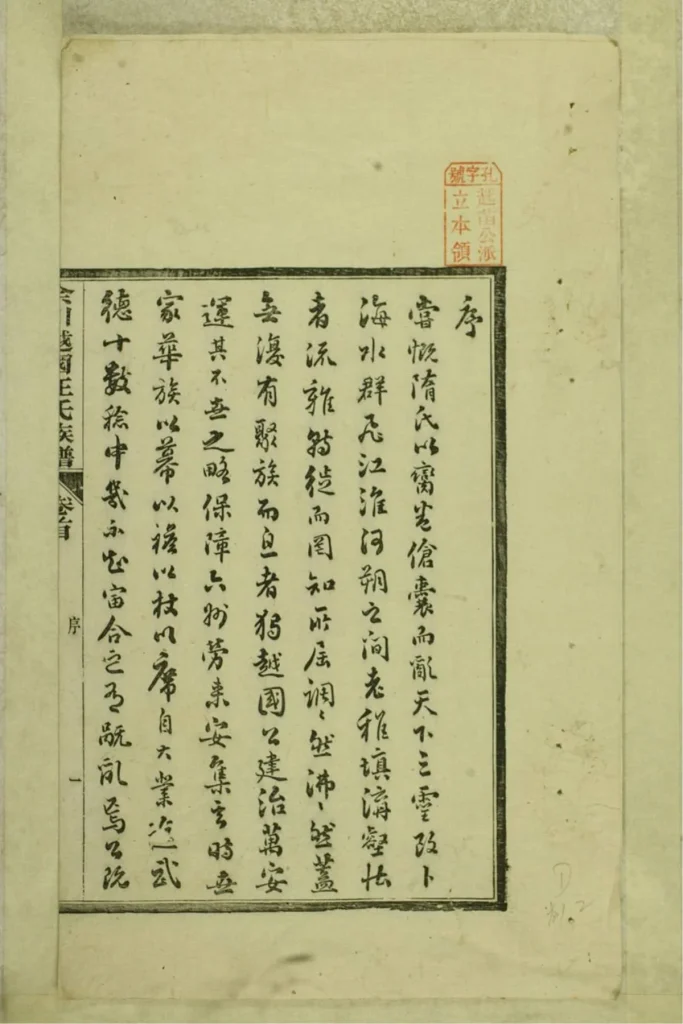 孔字號
廷苗公派
立本領
序
嘗慨隋氏以臠卷傖囊而亂天下三靈改卜
海水群飛江淮河朔之間老稚填溝壑壮
者流離轉徙而罔知所屆調々然沸々然蓋
無復有聚族而息者獨越國公建治萬安
運其不世之略保障六州勞来安集當時無
家華族以幕以襜以杖以席自大業迄武
德十數稔中幾不知宙合之有亂焉公既
越國汪氏族譜
卷首
序
一